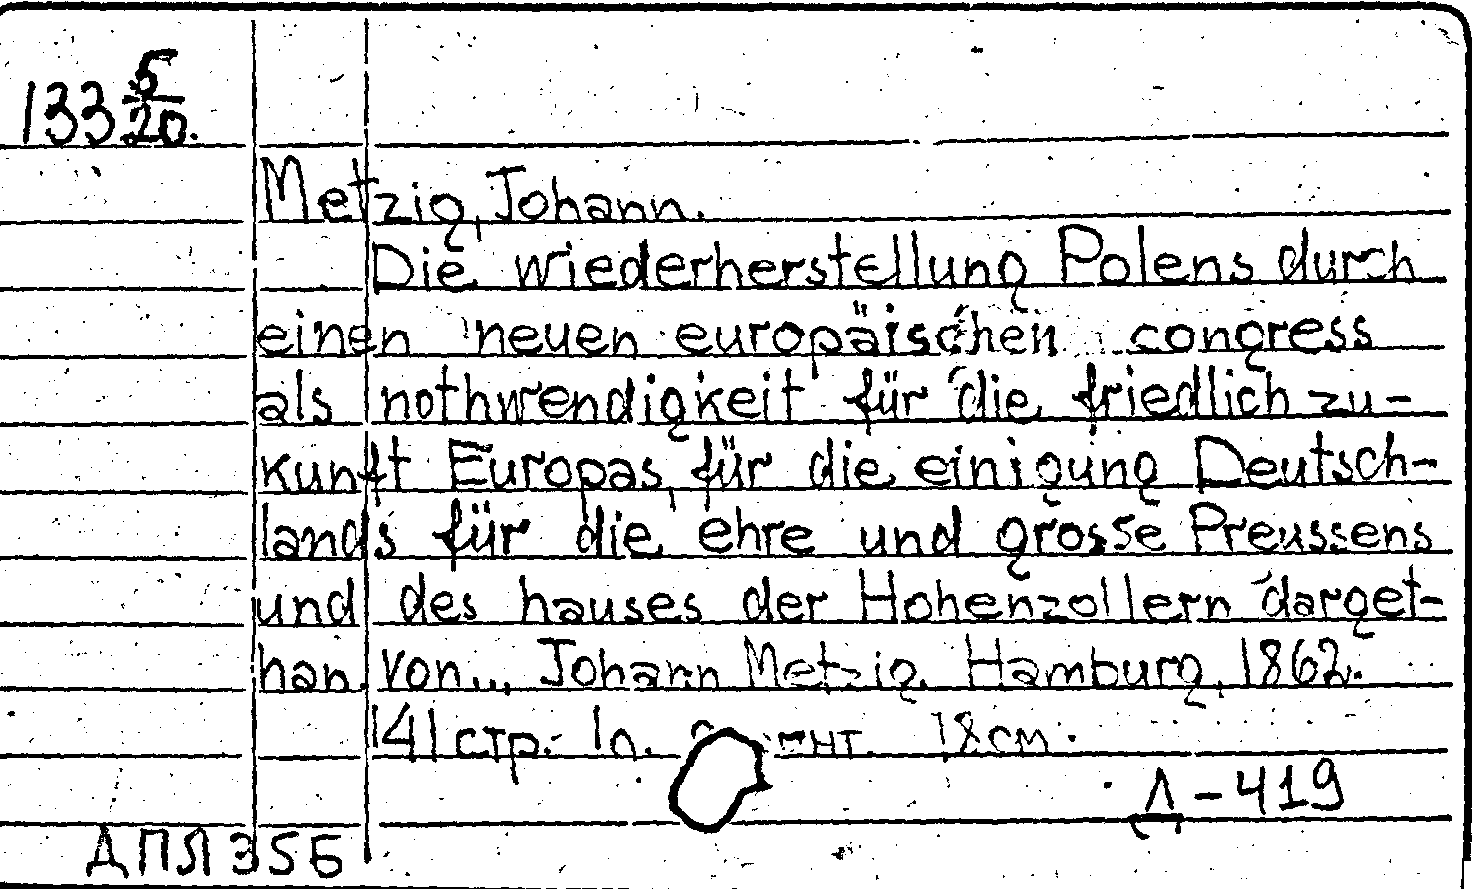 133 5/20.
Metzig, Johann.
Die wiederherstellung Polens durch
einen neuen europäischen congress
als nothwendigkeit für die friedlich zu-
kunft Europas, für die einigung Deutsch-
lands für die ehre und grosse Preussens
und des hauses der Hohenzollern darget-
han. von... Johann Metzig. Hamburg, 1862.
141 стр. 1л. 18см.
Д-419
ДПЛ 356